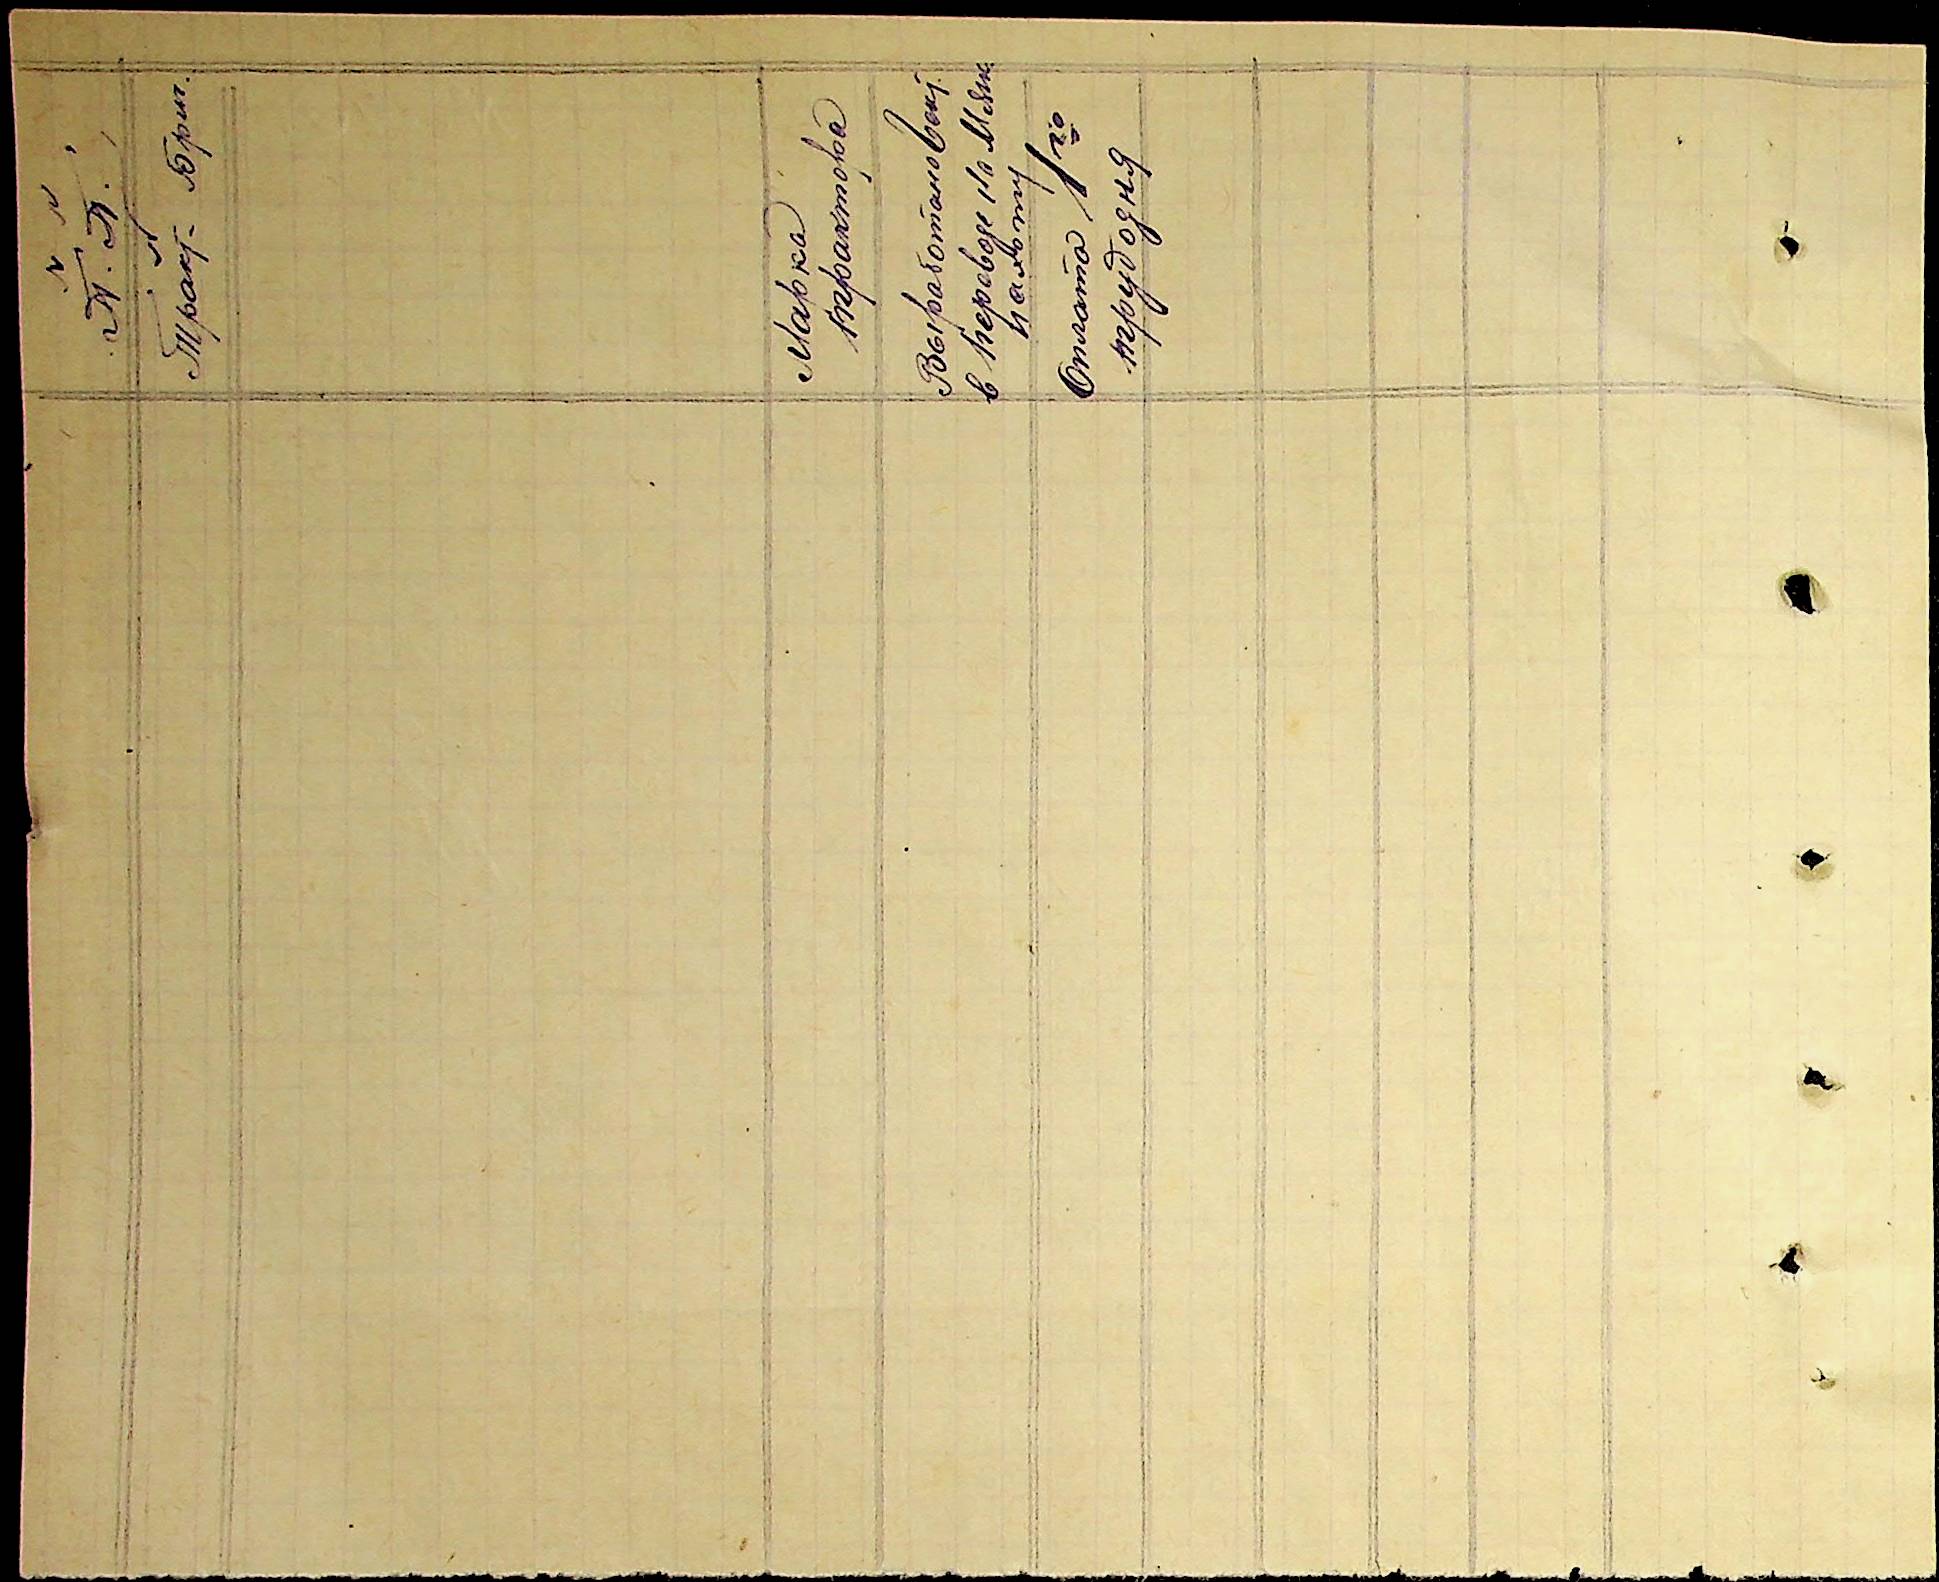 N N
П. П.
N
Тракт. Бриг.
Марка
трактора
Выработано гект.
в переводе на Мягк.
пахоту
Оплата 1го
трудодня